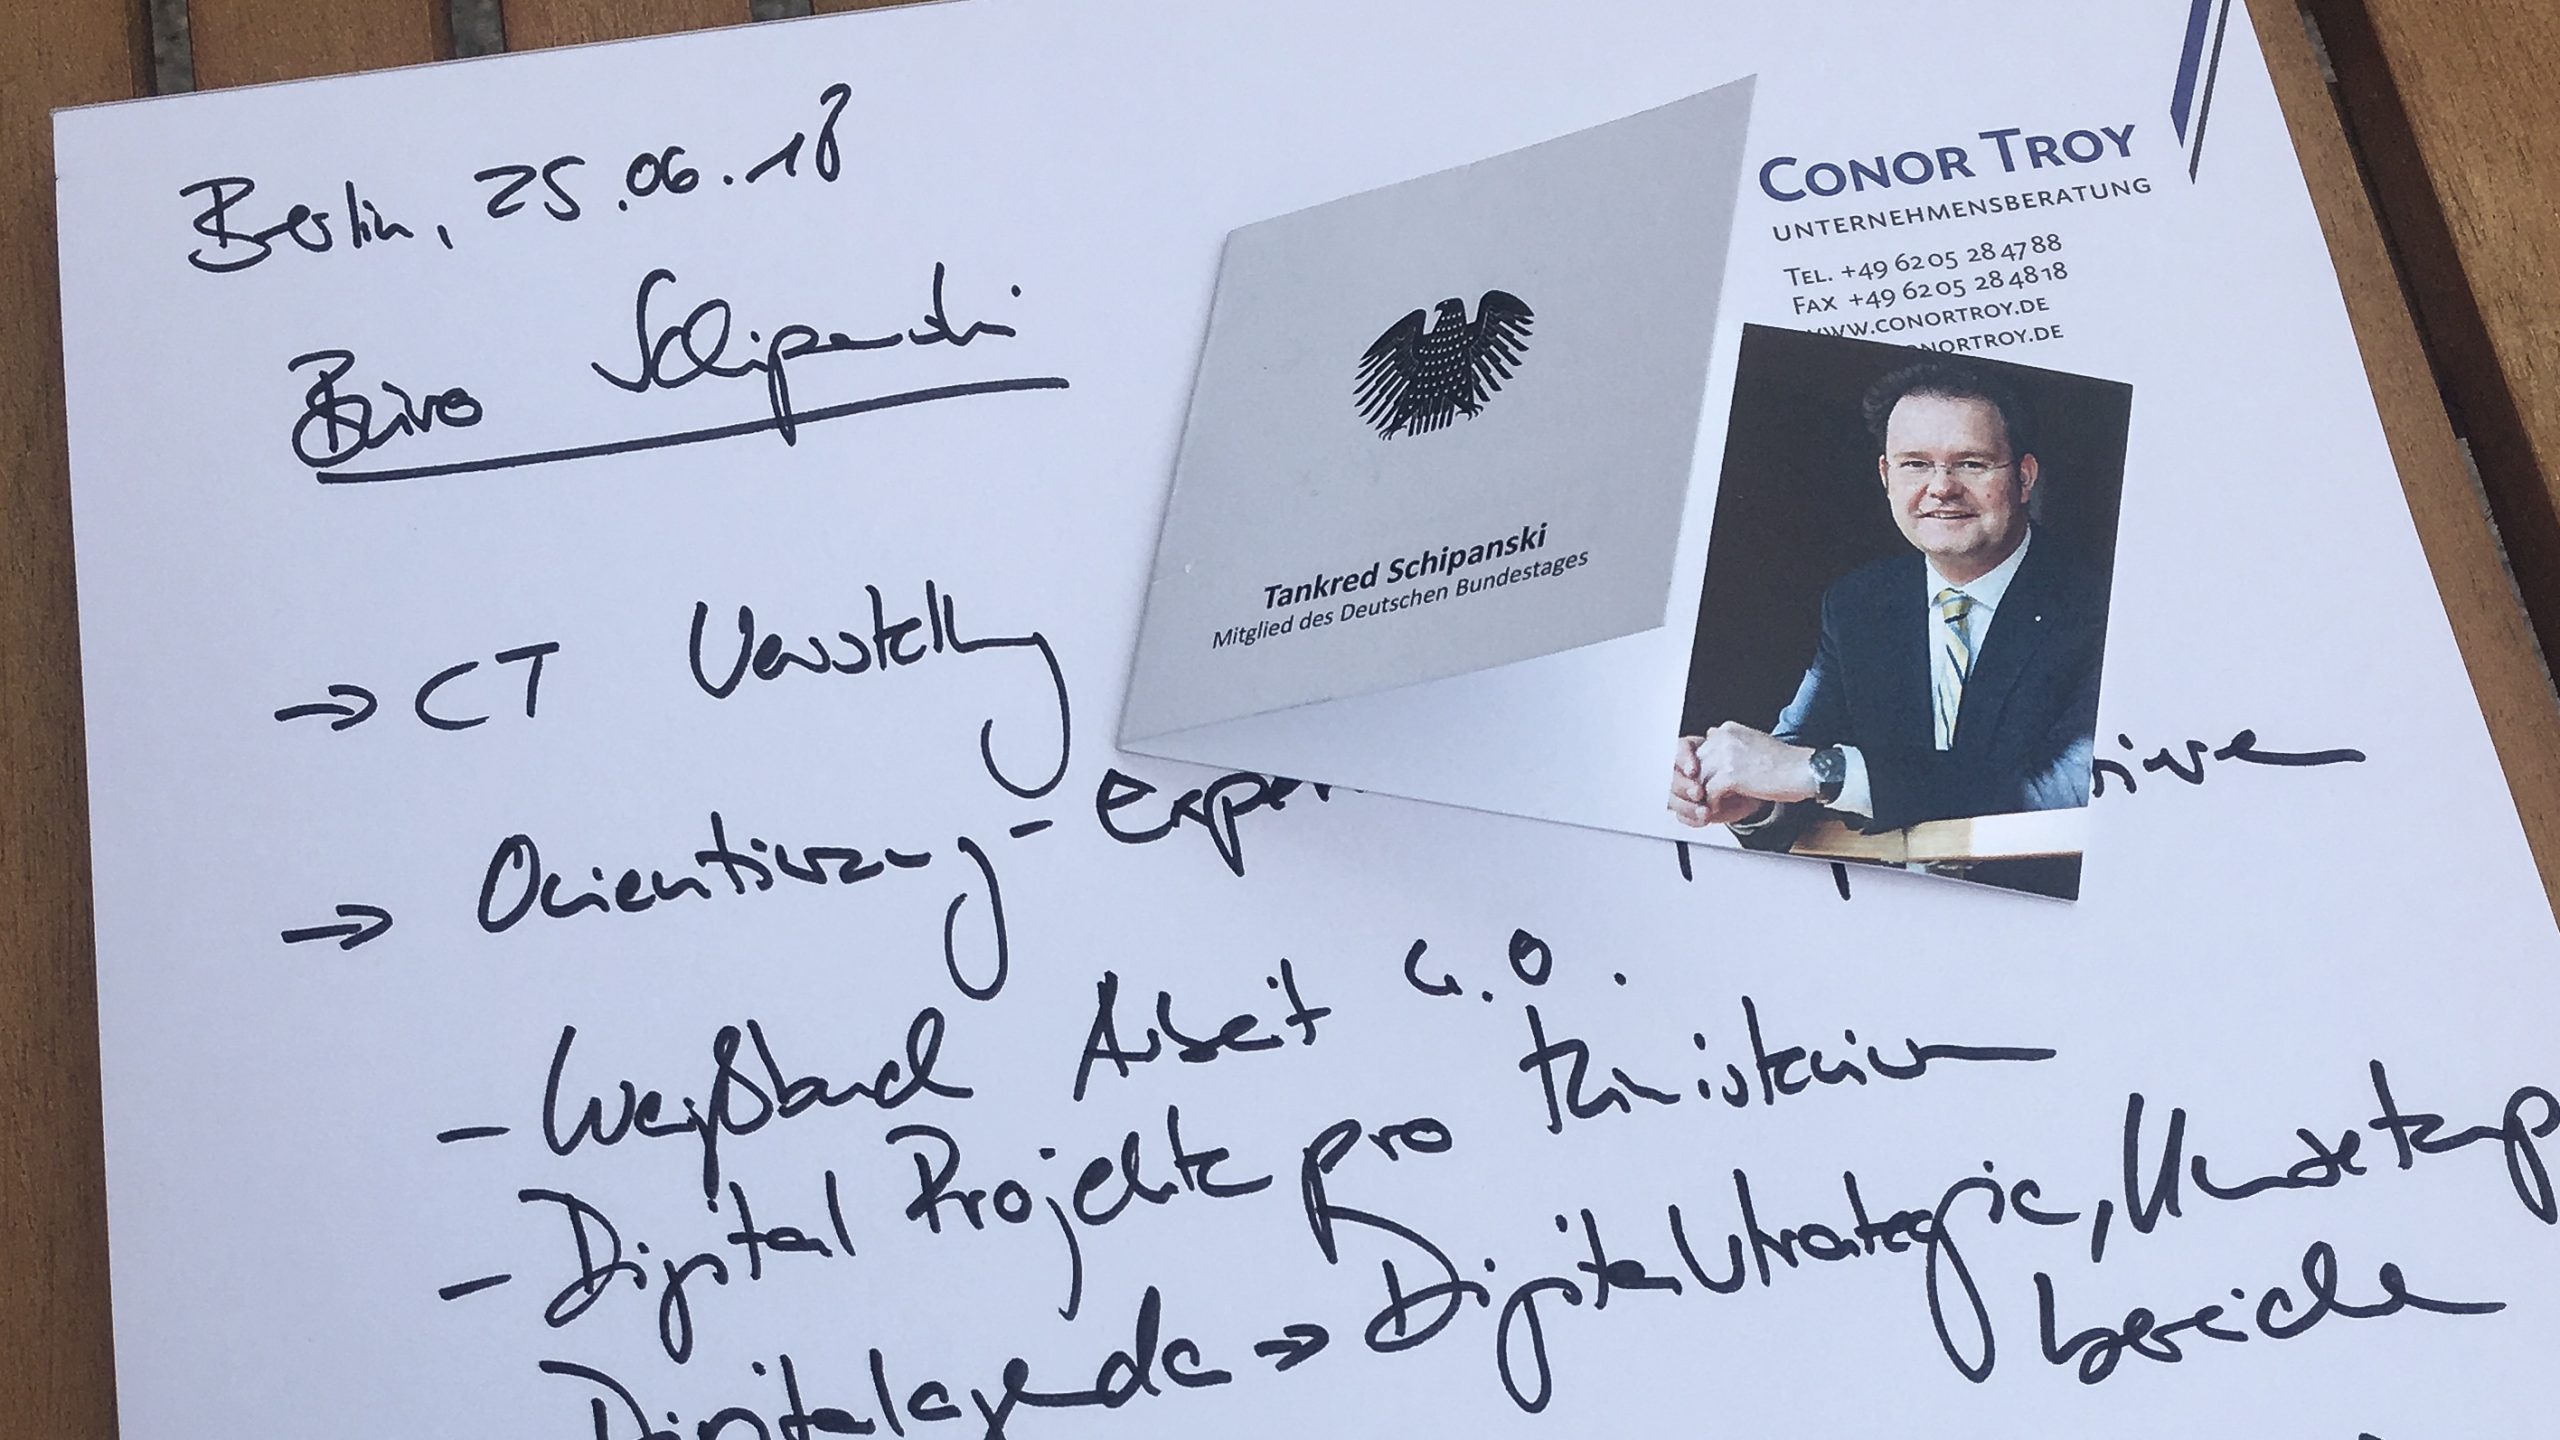 Berlin, 25.06.18
Büro Schipanski
CONOR TROY
UNTERNEHMENSBERATUNG
TEL. +49 6205 284788
FAX +49 6205 284818
WWW.CONORTROY.DE
CONORTROY.DE
Tankred Schipanski
Mitglied des Deutschen Bundestages
→ CT Vorstellung
→ Orientierung -
- Weißbuch Arbeit 4.0.
- Digital Projekte pro Ministerium
Digitalagenda → Digitalstrategie,
bereiche